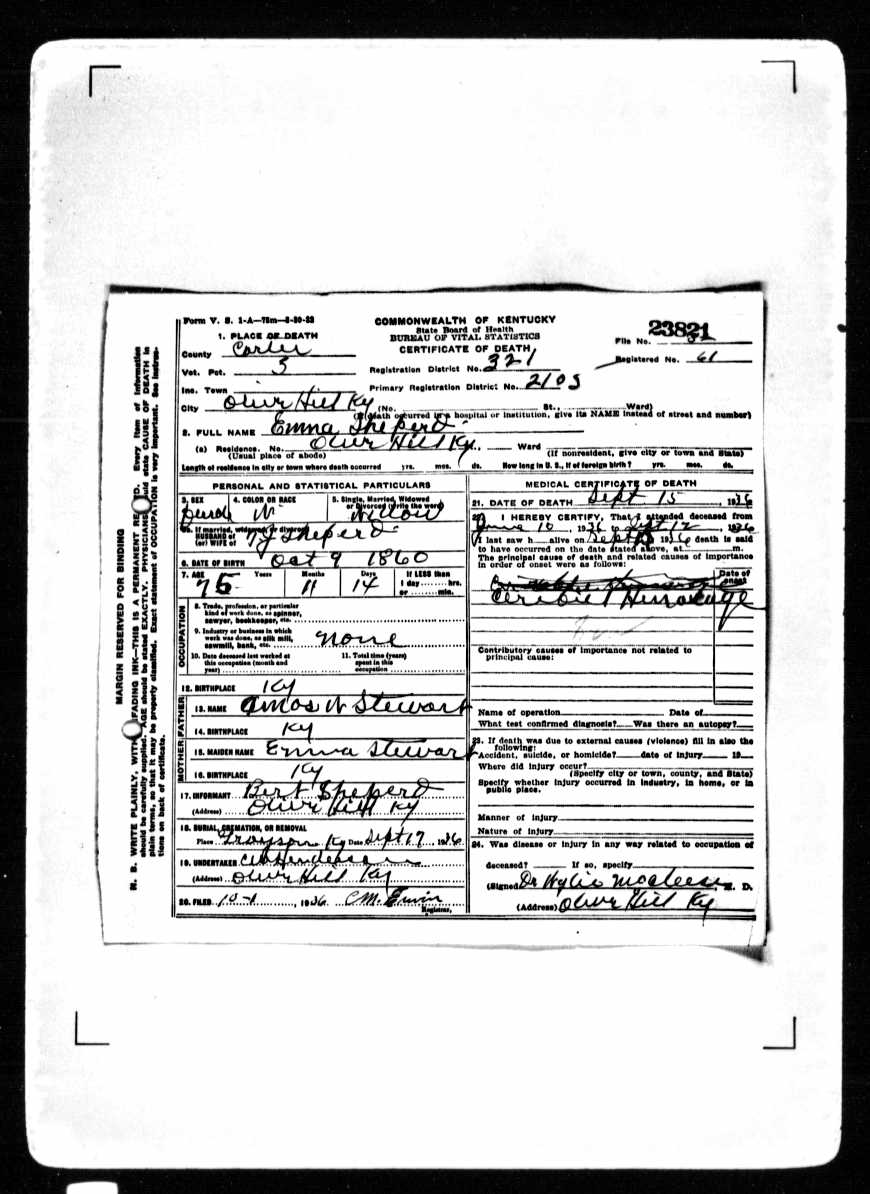 Form V. S. 1-A—75m—8-30-32
COMMONWEALTH OF KENTUCKY
State Board of Health
BUREAU OF VITAL STATISTICS
CERTIFICATE OF DEATH
File No. 23821
Registered No. 61
1. PLACE OF DEATH
County Carter
Vot. Pct. 5
Inc. Town
City Olive Hill Ky (No. St., Ward)
Registration District No. 321
Primary Registration District No. 2103
(If death occurred in a hospital or institution, give its NAME instead of street and number)
2. FULL NAME Emma Sheperd
(a) Residence. No. Olive Hill Ky., Ward
(Usual place of abode) (If nonresident, give city or town and State)
Length of residence in city or town where death occurred yrs. mos. ds. How long in U. S., if of foreign birth? yrs. mos. ds.
PERSONAL AND STATISTICAL PARTICULARS
3. SEX
4. COLOR OR RACE W
5. Single, Married, Widowed or Divorced (write the word) Widow
5a. If married, widowed, or divorced
HUSBAND of
(or) WIFE of Sheperd
6. DATE OF BIRTH Oct 9 1860
7. AGE 75 Years Months 11 Days 14 If LESS than
1 day hrs.
or min.
OCCUPATION
8. Trade, profession, or particular
kind of work done, as spinner,
sawyer, bookkeeper, etc.
9. Industry or business in which
work was done, as silk mill,
sawmill, bank, etc. None
10. Date deceased last worked at
this occupation (month and
year)
11. Total time (years)
spent in this
occupation
12. BIRTHPLACE Ky
FATHER
13. NAME Amos W Stewart
14. BIRTHPLACE Ky
MOTHER
15. MAIDEN NAME Emma Stewart
16. BIRTHPLACE Ky
17. INFORMANT Bert Sheperd
(Address) Olive Hill Ky
18. BURIAL, CREMATION, OR REMOVAL
Place Grayson Ky Date Sept 17, 1936
19. UNDERTAKER Henderson
(Address) Olive Hill Ky
20. FILED 10-1, 1936 C.M. Erwin
Registrar.
MEDICAL CERTIFICATE OF DEATH
21. DATE OF DEATH Sept 15, 1936
22. I HEREBY CERTIFY, That I attended deceased from
June 10, 1936 to Sept 12, 1936
I last saw h alive on Sept 1936 death is said
to have occurred on the date stated above, at m.
The principal cause of death and related causes of importance
in order of onset were as follows:
Date of onset
Contributory causes of importance not related to
principal cause:
Name of operation Date of
What test confirmed diagnosis? Was there an autopsy?
23. If death was due to external causes (violence) fill in also the
following:
Accident, suicide, or homicide? date of injury 19
Where did injury occur?
(Specify city or town, county, and State)
Specify whether injury occurred in industry, in home, or in
public place.
Manner of injury
Nature of injury
24. Was disease or injury in any way related to occupation of
deceased? If so, specify
(Signed) Dr Wylie, M. D.
(Address) Olive Hill Ky
MARGIN RESERVED FOR BINDING
N. B. WRITE PLAINLY, WITH UNFADING INK—THIS IS A PERMANENT RECORD. Every item of information
should be carefully supplied. AGE should be stated EXACTLY. PHYSICIANS should state CAUSE OF DEATH in
plain terms, so that it may be properly classified. Exact statement of OCCUPATION is very important. See instruc-
tions on back of certificate.